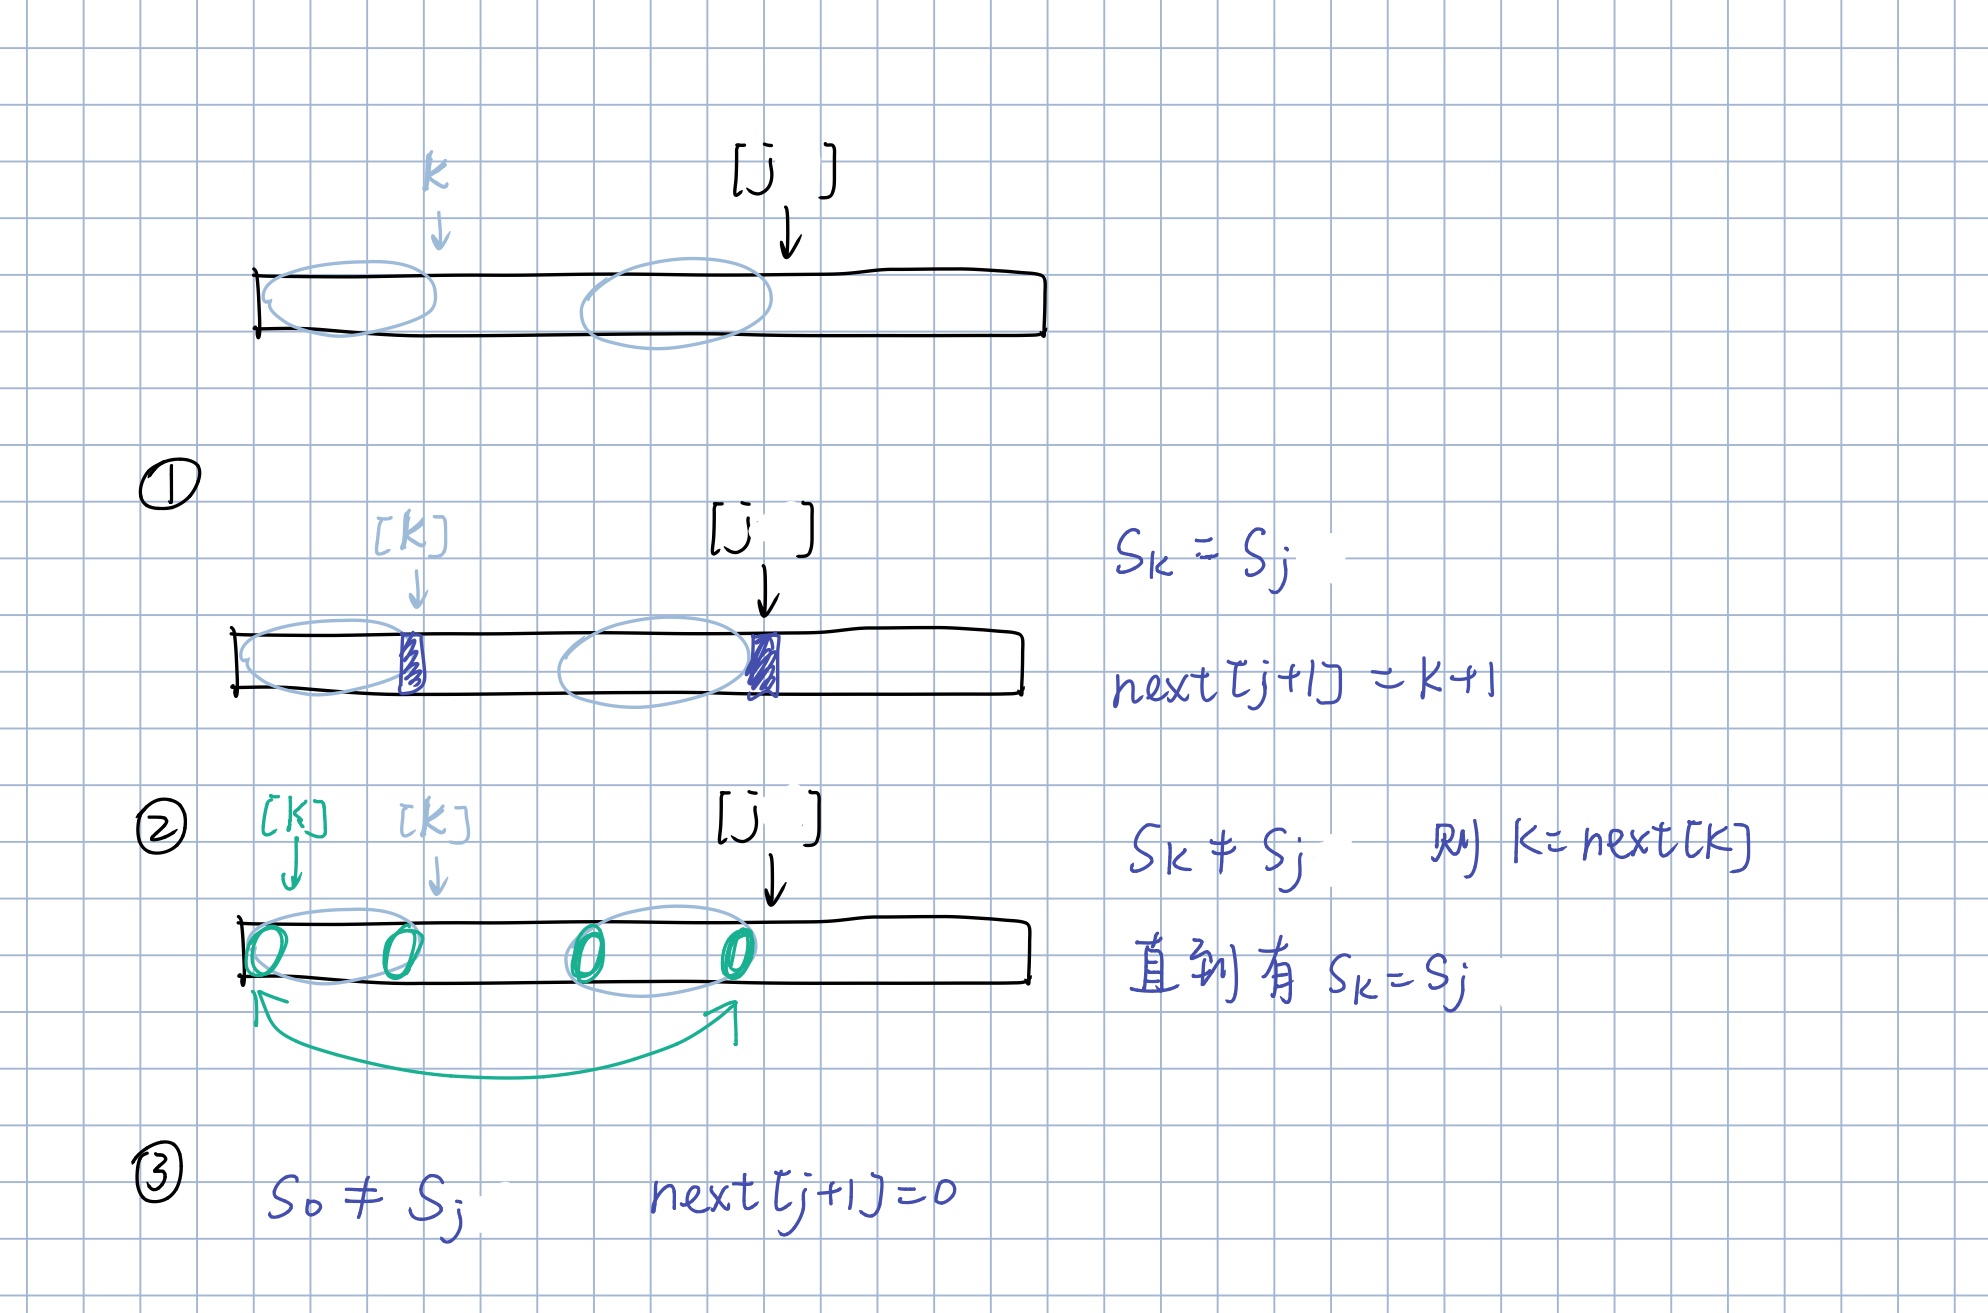 k [j ]
①
[k] [j ] Sk = Sj
next[j+1] = k+1
②
[k] [k] [j ] Sk ≠ Sj 则 k=next[k]
直到有 Sk=Sj
③ S0 ≠ Sj next[j+1]=0